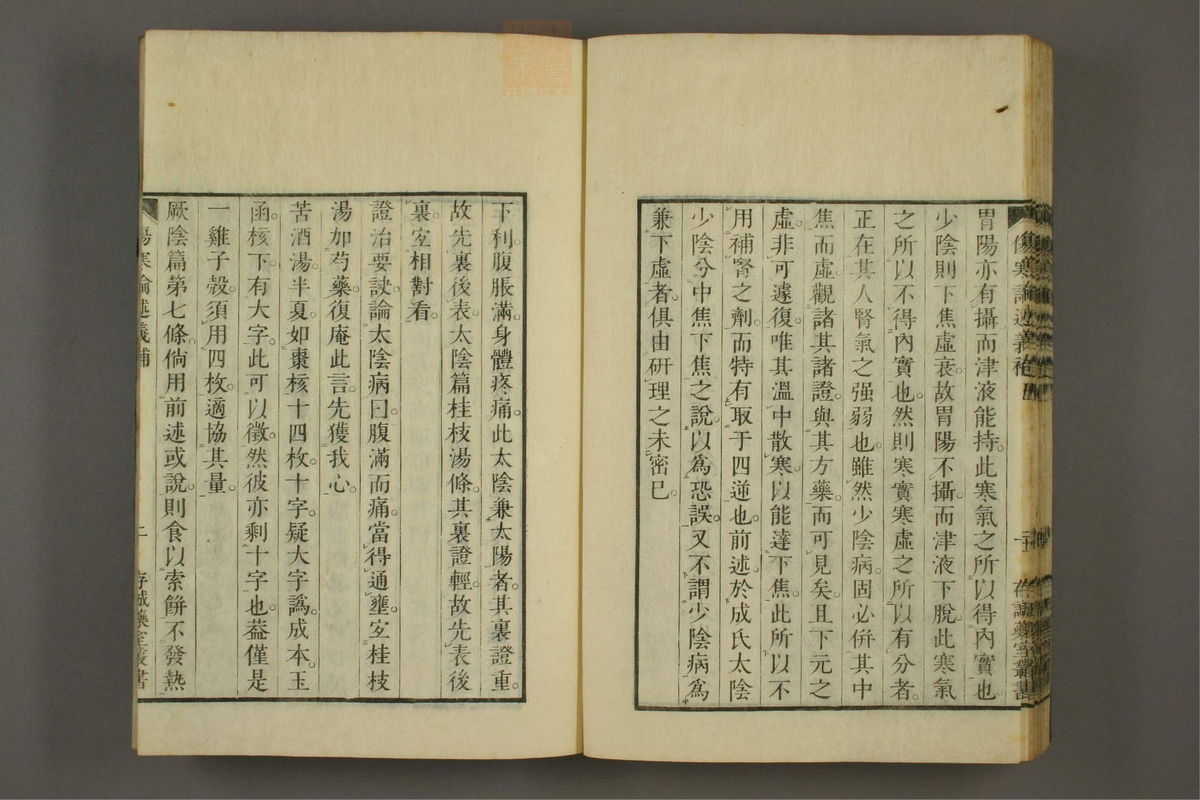 胃陽亦有攝而津液能持。此寒氣之所以得內實也
少陰則下焦虛衰。故胃陽不攝。而津液下脫。此寒氣
之所以不得內實也。然則寒實寒虛之所以有分者。
正在其人腎氣之强弱也。雖然少陰病。固必併其中
焦而虛。觀諸其諸證。與其方藥。而可見矣。且下元之
虛。非可遽復。唯其溫中散寒。以能達下焦。此所以不
用補腎之劑。而特有取于四逆也。前述於成氏太陰
少陰分中焦下焦之說。以爲恐誤。又不謂少陰病爲
兼下虛者。俱由研理之未密已。
存誠藥室叢書
下利。腹脹滿。身體疼痛。此太陰兼太陽者。其裏證重。
故先裏後表。太陰篇桂枝湯條。其裏證輕。故先表後
裏。宜相對看。
證治要訣論太陰病曰。腹滿而痛。當得通壅。宜桂枝
湯加芍藥。復庵此言。先獲我心。
苦酒湯。半夏。如棗核十四枚。十字。疑大字譌。成本。玉
函。核下。有大字。此可以徵。然彼亦剩十字也。葢僅是
一雞子殼。須用四枚。適協其量。
厥陰篇第七條。倘用前述或說。則食以索餅不發熱
傷寒論述義補
二
存誠藥室叢書